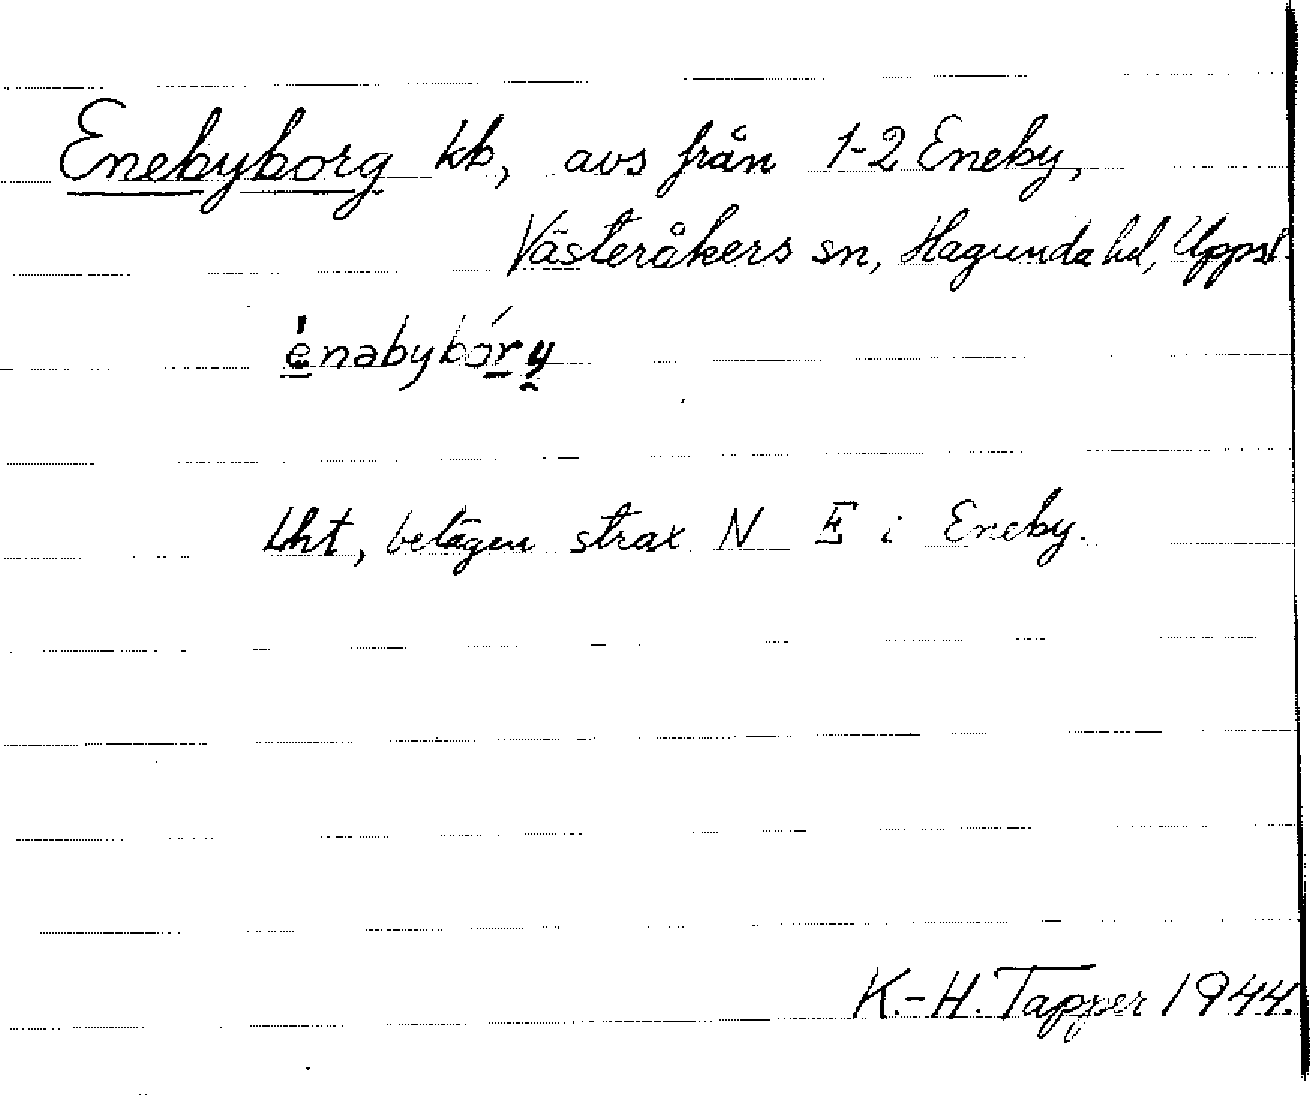 Enebyborg kb, avs från 1-2 Eneby,
Västeråkers sn, Hagunda hd, Uppsl.
énabybóry
Lht, belägen strax N E i Eneby.
K.-H. Tapper 1944.